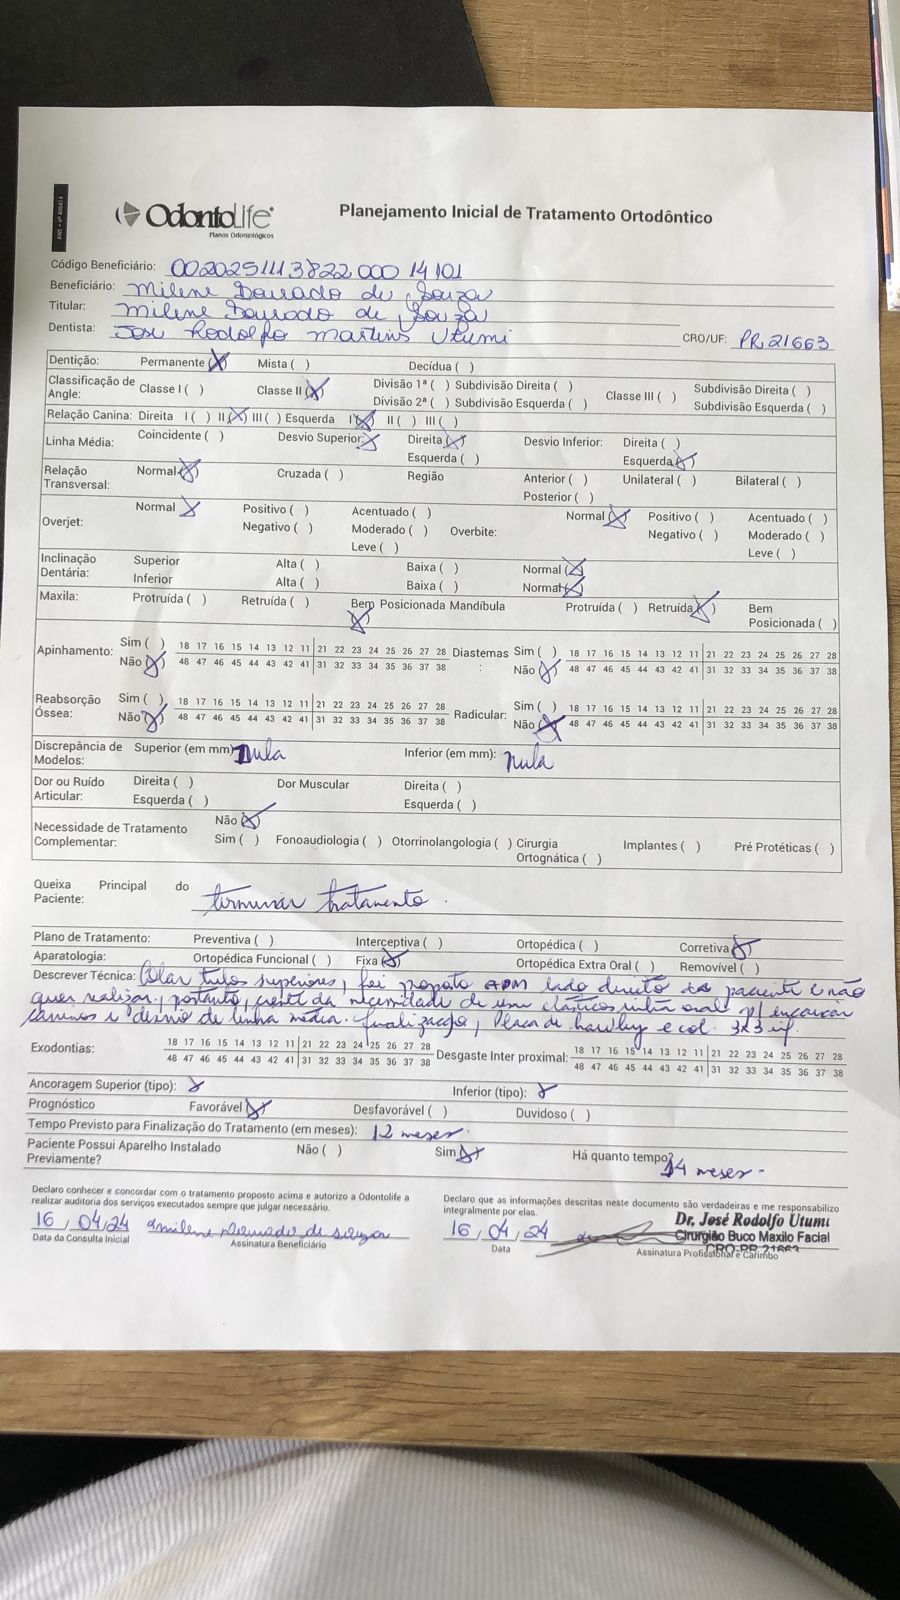 ANS - nº 406414
OdontoLife
Planos Odontológicos
Planejamento Inicial de Tratamento Ortodôntico
Código Beneficiário: 00202511138220001 4101
Beneficiário: Milene Dourado de Souza
Titular: Milene Dourado de Souza
Dentista: Jose Rodolfo Martins Utumi CRO/UF: PR 21663
Dentição: Permanente (X) Mista ( ) Decídua ( )
Classificação de Angle: Classe I ( ) Classe II (X) Divisão 1ª ( ) Subdivisão Direita ( ) Divisão 2ª ( ) Subdivisão Esquerda ( ) Classe III ( ) Subdivisão Direita ( ) Subdivisão Esquerda ( )
Relação Canina: Direita I ( ) II (X) III ( ) Esquerda I (X) II ( ) III ( )
Linha Média: Coincidente ( ) Desvio Superior: X Direita (X) Esquerda ( ) Desvio Inferior: Direita ( ) Esquerda (X)
Relação Transversal: Normal (X) Cruzada ( ) Região Anterior ( ) Posterior ( ) Unilateral ( ) Bilateral ( )
Overjet: Normal X Positivo ( ) Negativo ( ) Acentuado ( ) Moderado ( ) Leve ( ) Overbite: Normal (X) Positivo ( ) Negativo ( ) Acentuado ( ) Moderado ( ) Leve ( )
Inclinação Dentária: Superior Alta ( ) Baixa ( ) Normal (X)
Inferior Alta ( ) Baixa ( ) Normal (X)
Maxila: Protruída ( ) Retruída ( ) Bem Posicionada (X) Mandíbula Protruída ( ) Retruída (X) Bem Posicionada ( )
Apinhamento: Sim ( ) 18 17 16 15 14 13 12 11 21 22 23 24 25 26 27 28 Diastemas : Sim ( ) 18 17 16 15 14 13 12 11 21 22 23 24 25 26 27 28
Não (X) 48 47 46 45 44 43 42 41 31 32 33 34 35 36 37 38 Não (X) 48 47 46 45 44 43 42 41 31 32 33 34 35 36 37 38
Reabsorção Óssea: Sim ( ) 18 17 16 15 14 13 12 11 21 22 23 24 25 26 27 28 Radicular: Sim ( ) 18 17 16 15 14 13 12 11 21 22 23 24 25 26 27 28
Não (X) 48 47 46 45 44 43 42 41 31 32 33 34 35 36 37 38 Não (X) 48 47 46 45 44 43 42 41 31 32 33 34 35 36 37 38
Discrepância de Modelos: Superior (em mm) nula Inferior (em mm): nula
Dor ou Ruído Articular: Direita ( ) Esquerda ( ) Dor Muscular Direita ( ) Esquerda ( )
Necessidade de Tratamento Complementar: Não (X)
Sim ( ) Fonoaudiologia ( ) Otorrinolangologia ( ) Cirurgia Ortognática ( ) Implantes ( ) Pré Protéticas ( )
Queixa Principal do Paciente: terminar tratamento.
Plano de Tratamento: Preventiva ( ) Interceptiva ( ) Ortopédica ( ) Corretiva (X)
Aparatologia: Ortopédica Funcional ( ) Fixa (X) Ortopédica Extra Oral ( ) Removível ( )
Descrever Técnica: Colar tubos superiores, foi proposto APM lado direito da paciente e não
quer realizar, portanto, ciente da necessidade de usar elásticos intra oral p/ encaixar
caninos e desvio de linha média. finalização, Placa de hawley e col. 3x3 inf.
Exodontias: 18 17 16 15 14 13 12 11 21 22 23 24 25 26 27 28 Desgaste Inter proximal: 18 17 16 15 14 13 12 11 21 22 23 24 25 26 27 28
48 47 46 45 44 43 42 41 31 32 33 34 35 36 37 38 48 47 46 45 44 43 42 41 31 32 33 34 35 36 37 38
Ancoragem Superior (tipo): Inferior (tipo):
Prognóstico Favorável (X) Desfavorável ( ) Duvidoso ( )
Tempo Previsto para Finalização do Tratamento (em meses): 12 meses.
Paciente Possui Aparelho Instalado Previamente? Não ( ) Sim (X) Há quanto tempo? 14 meses-
Declaro conhecer e concordar com o tratamento proposto acima e autorizo a Odontolife a realizar auditoria dos serviços executados sempre que julgar necessário.
16/04/24 milene dourado de souza
Data da Consulta Inicial Assinatura Beneficiário
Declaro que as informações descritas neste documento são verdadeiras e me responsabilizo integralmente por elas.
16/04/24
Dr. José Rodolfo Utumi
Cirurgião Buco Maxilo Facial
CRO-PR 21663
Data Assinatura Profissional e Carimbo